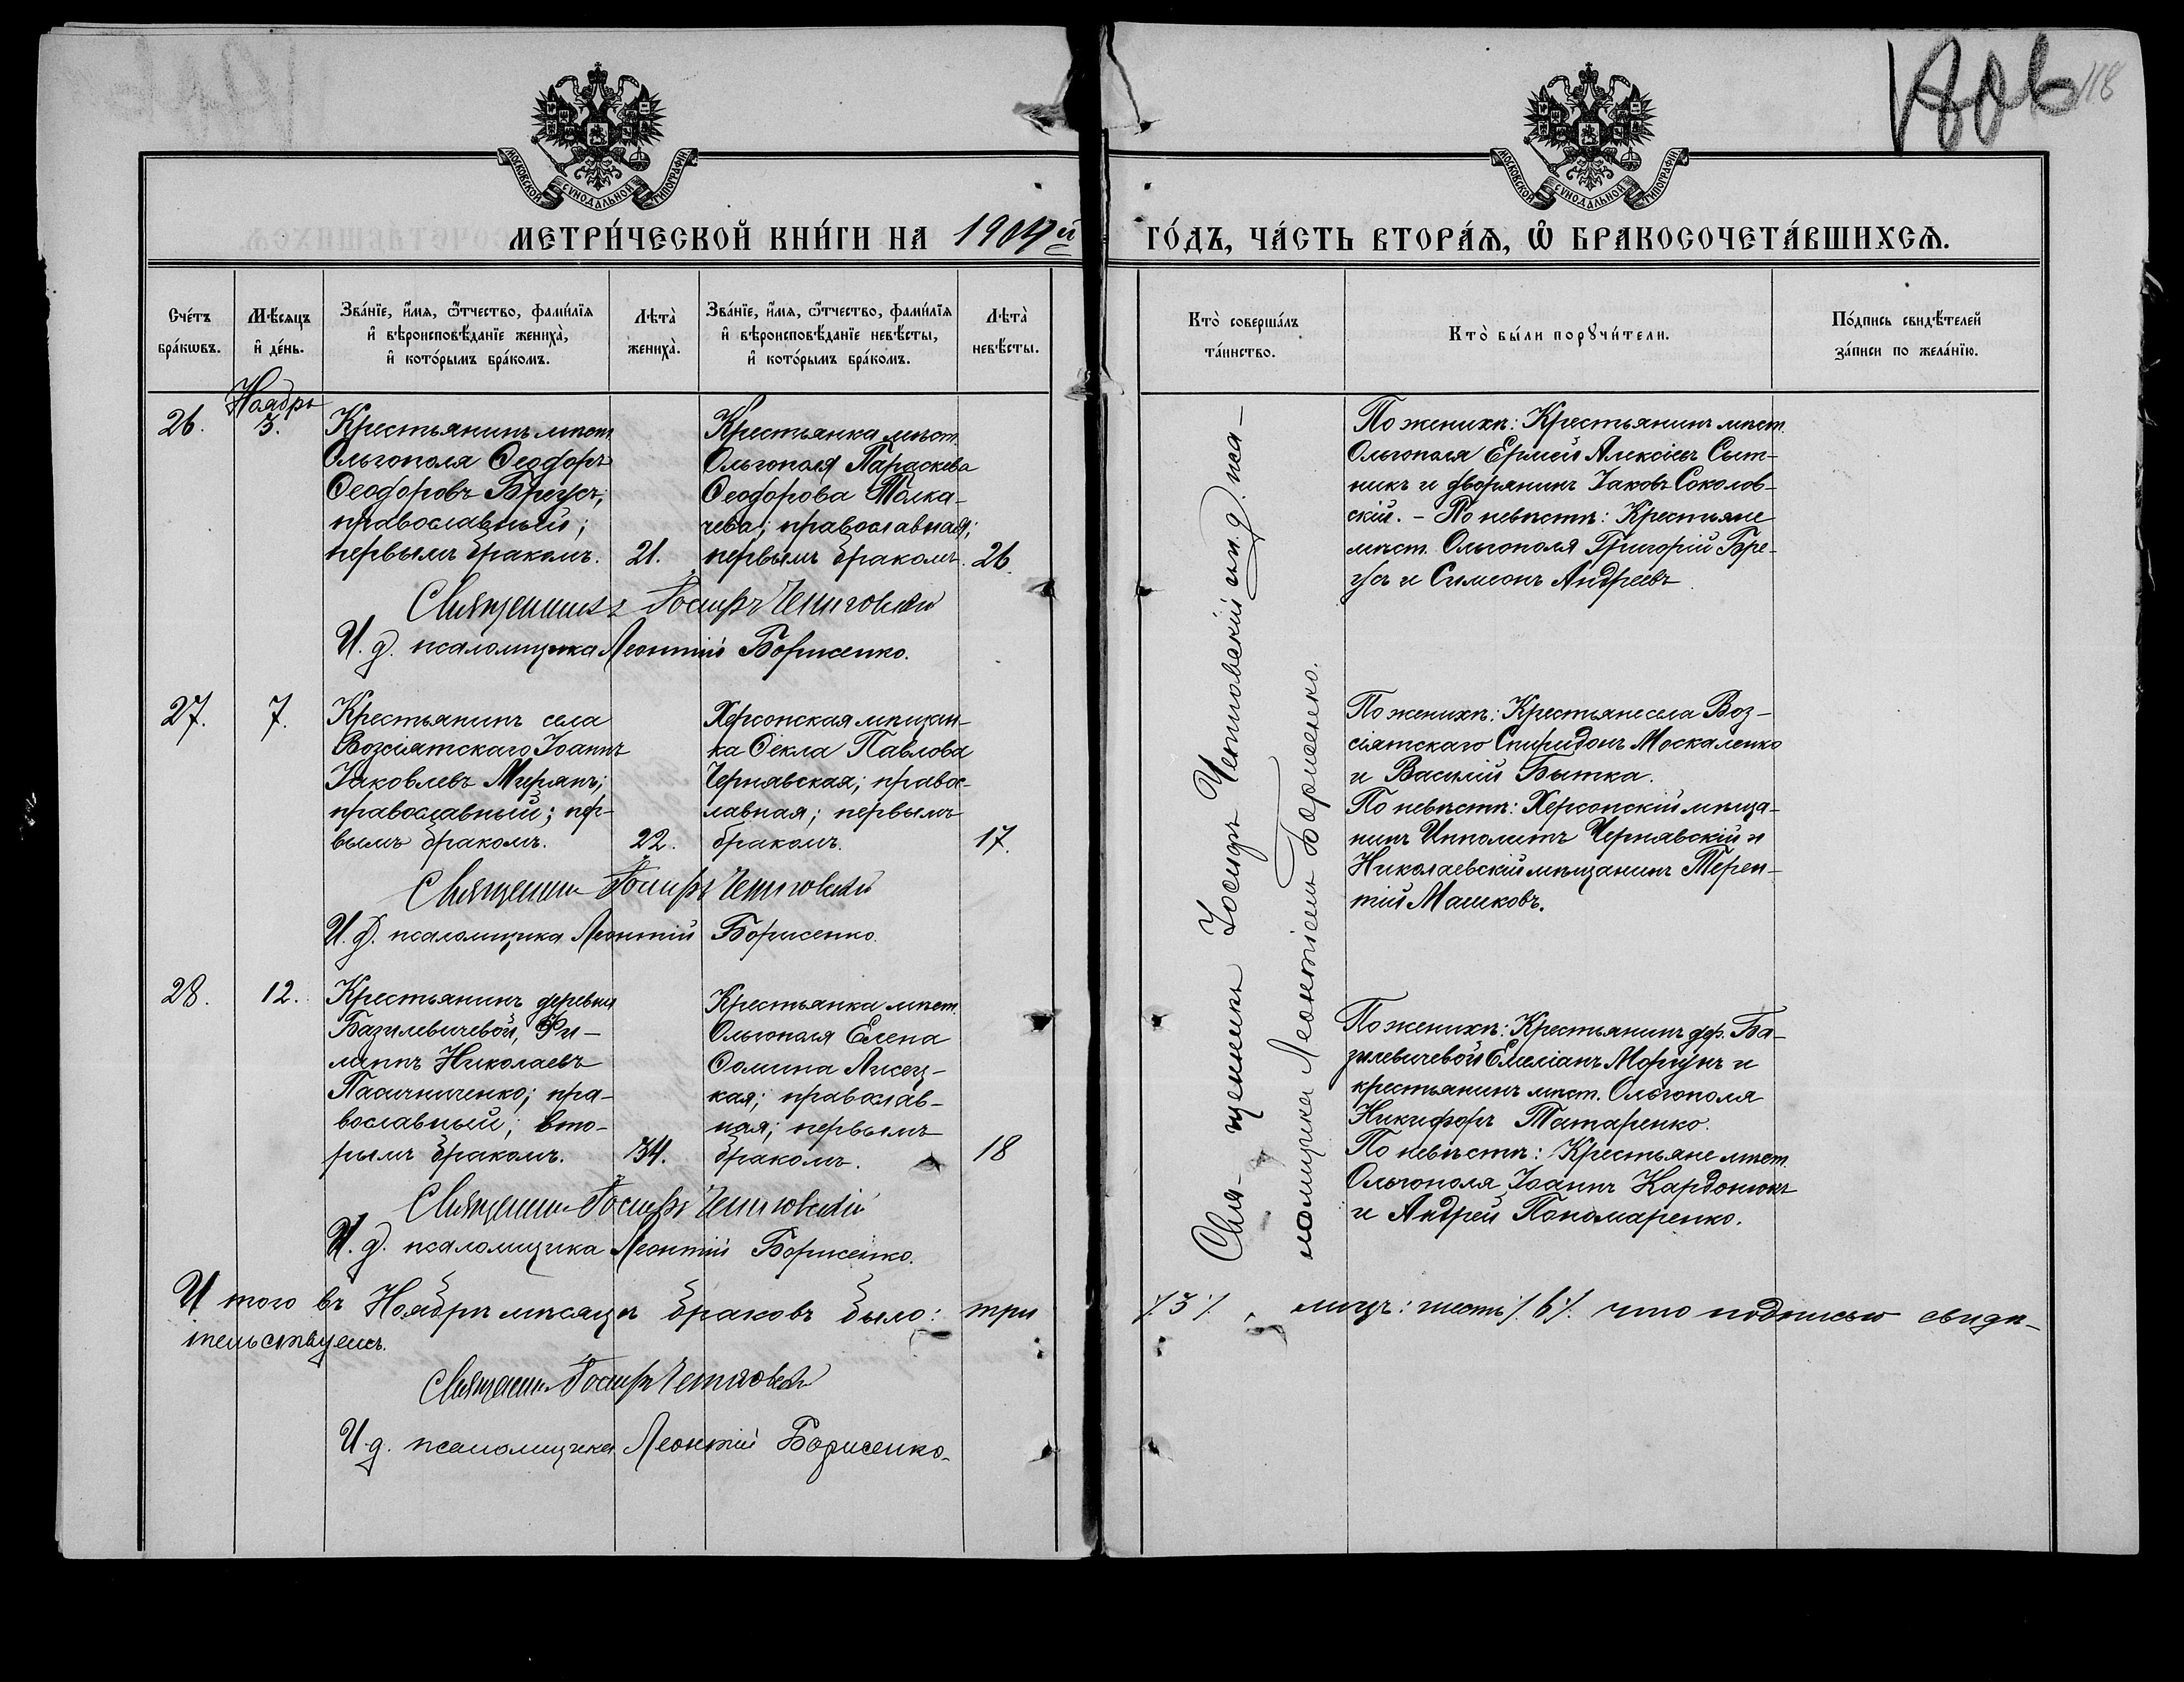 118
МОСКОВСКОЙ СѴНОДАЛЬНОЙ ТИПОГРАФІИ
МОСКОВСКОЙ СѴНОДАЛЬНОЙ ТИПОГРАФІИ
МЕТРИ́ЧЕСКОЙ КНИ́ГИ НА 1904й ГО́ДЪ, ЧА́СТЬ ВТОРА́Ѧ, Ѽ БРАКОСОЧЕТА́ВШИХСѦ.
Сче́тъ бра́кѡвъ.
Мѣ́сяцъ и҆ де́нь.
Зва́нїе, и҆́мѧ, ѻ҆́тчество, фами́лїѧ
и҆ вѣроисповѣ́данїе жениха̀,
и҆ кото́рымъ бра́комъ.
Лѣта̀ жениха̀.
Зва́нїе, и҆́мѧ, ѻ҆́тчество, фами́лїѧ
и҆ вѣроисповѣ́данїе невѣ́сты,
и҆ кото́рымъ бра́комъ.
Лѣта̀ невѣ́сты.
Кто̀ соверша́лъ
та́инство.
Кто̀ бы́ли порꙋчи́тели.
По́дпись свидѣ́телей
за́писи по жела́нїю.
Ноябрь
26.
3.
Крестьянинъ мѣст.
Ольгополя Ѳеодоръ
Ѳеодоровъ Брегусъ;
православный;
первымъ бракомъ.
21.
Крестьянка мѣст.
Ольгополя Параскева
Ѳеодорова Толка-
чева; православная;
первымъ бракомъ.
26.
По женихѣ: Крестьянинъ мѣст.
Ольгополя Ермей Алексѣевъ Сыт-
никъ и дворянинъ Іаковъ Соколов-
скій. – По невѣстѣ: Крестьяне
мѣст. Ольгополя Григорій Бре-
гусъ и Симеонъ Андреевъ.
Священникъ Іосифъ
И. д. псаломщика Леонтій Борисенко.
27.
7.
Крестьянинъ села
Возсіятскаго Іоаннъ
Іаковлевъ Мирянъ;
православный; пер-
вымъ бракомъ.
22.
Херсонская мѣщан-
ка Ѳекла Павлова
Чернявская; правос-
лавная; первымъ
бракомъ.
17.
По женихѣ: Крестьяне села Воз-
сіятскаго Спиридонъ Москаленко
и Василій Бытка.
По невѣстѣ: Херсонскій мѣща-
нинъ Ипполитъ Чернявскій и
Николаевскій мѣщанинъ Терен-
тій Машковъ.
Священникъ Іосифъ
И. д. псаломщика Леонтій Борисенко.
28.
12.
Крестьянинъ деревни
Базилевичевой, Фи-
липпъ Николаевъ
Пасичниченко; пра-
вославный; вто-
рымъ бракомъ.
34.
Крестьянка мѣст.
Ольгополя Елена
Ѳомина Лисец-
кая; православ-
ная; первымъ
бракомъ.
18
По женихѣ: Крестьянинъ дер. Ба-
зилевичевой Емеліанъ Моргунъ и
крестьянинъ мѣст. Ольгополя
Никифоръ Татаренко.
По невѣстѣ: Крестьяне мѣст.
Ольгополя Іоаннъ Кардонюкъ
и Андрей Пономаренко.
Священникъ Іосифъ
И. д. псаломщика Леонтій Борисенко.
Свя- щенникъ Іосифъ и и. д. пса-
ломщика Леонтіемъ Борисенко.
И того въ Ноябрѣ мѣсяцѣ браковъ было: три ⁒3⁒, лицъ: шесть ⁒6⁒. что подписью свидѣ-
тельствуемъ.
Священникъ Іосифъ
И. д. псаломщика Леонтій Борисенко.